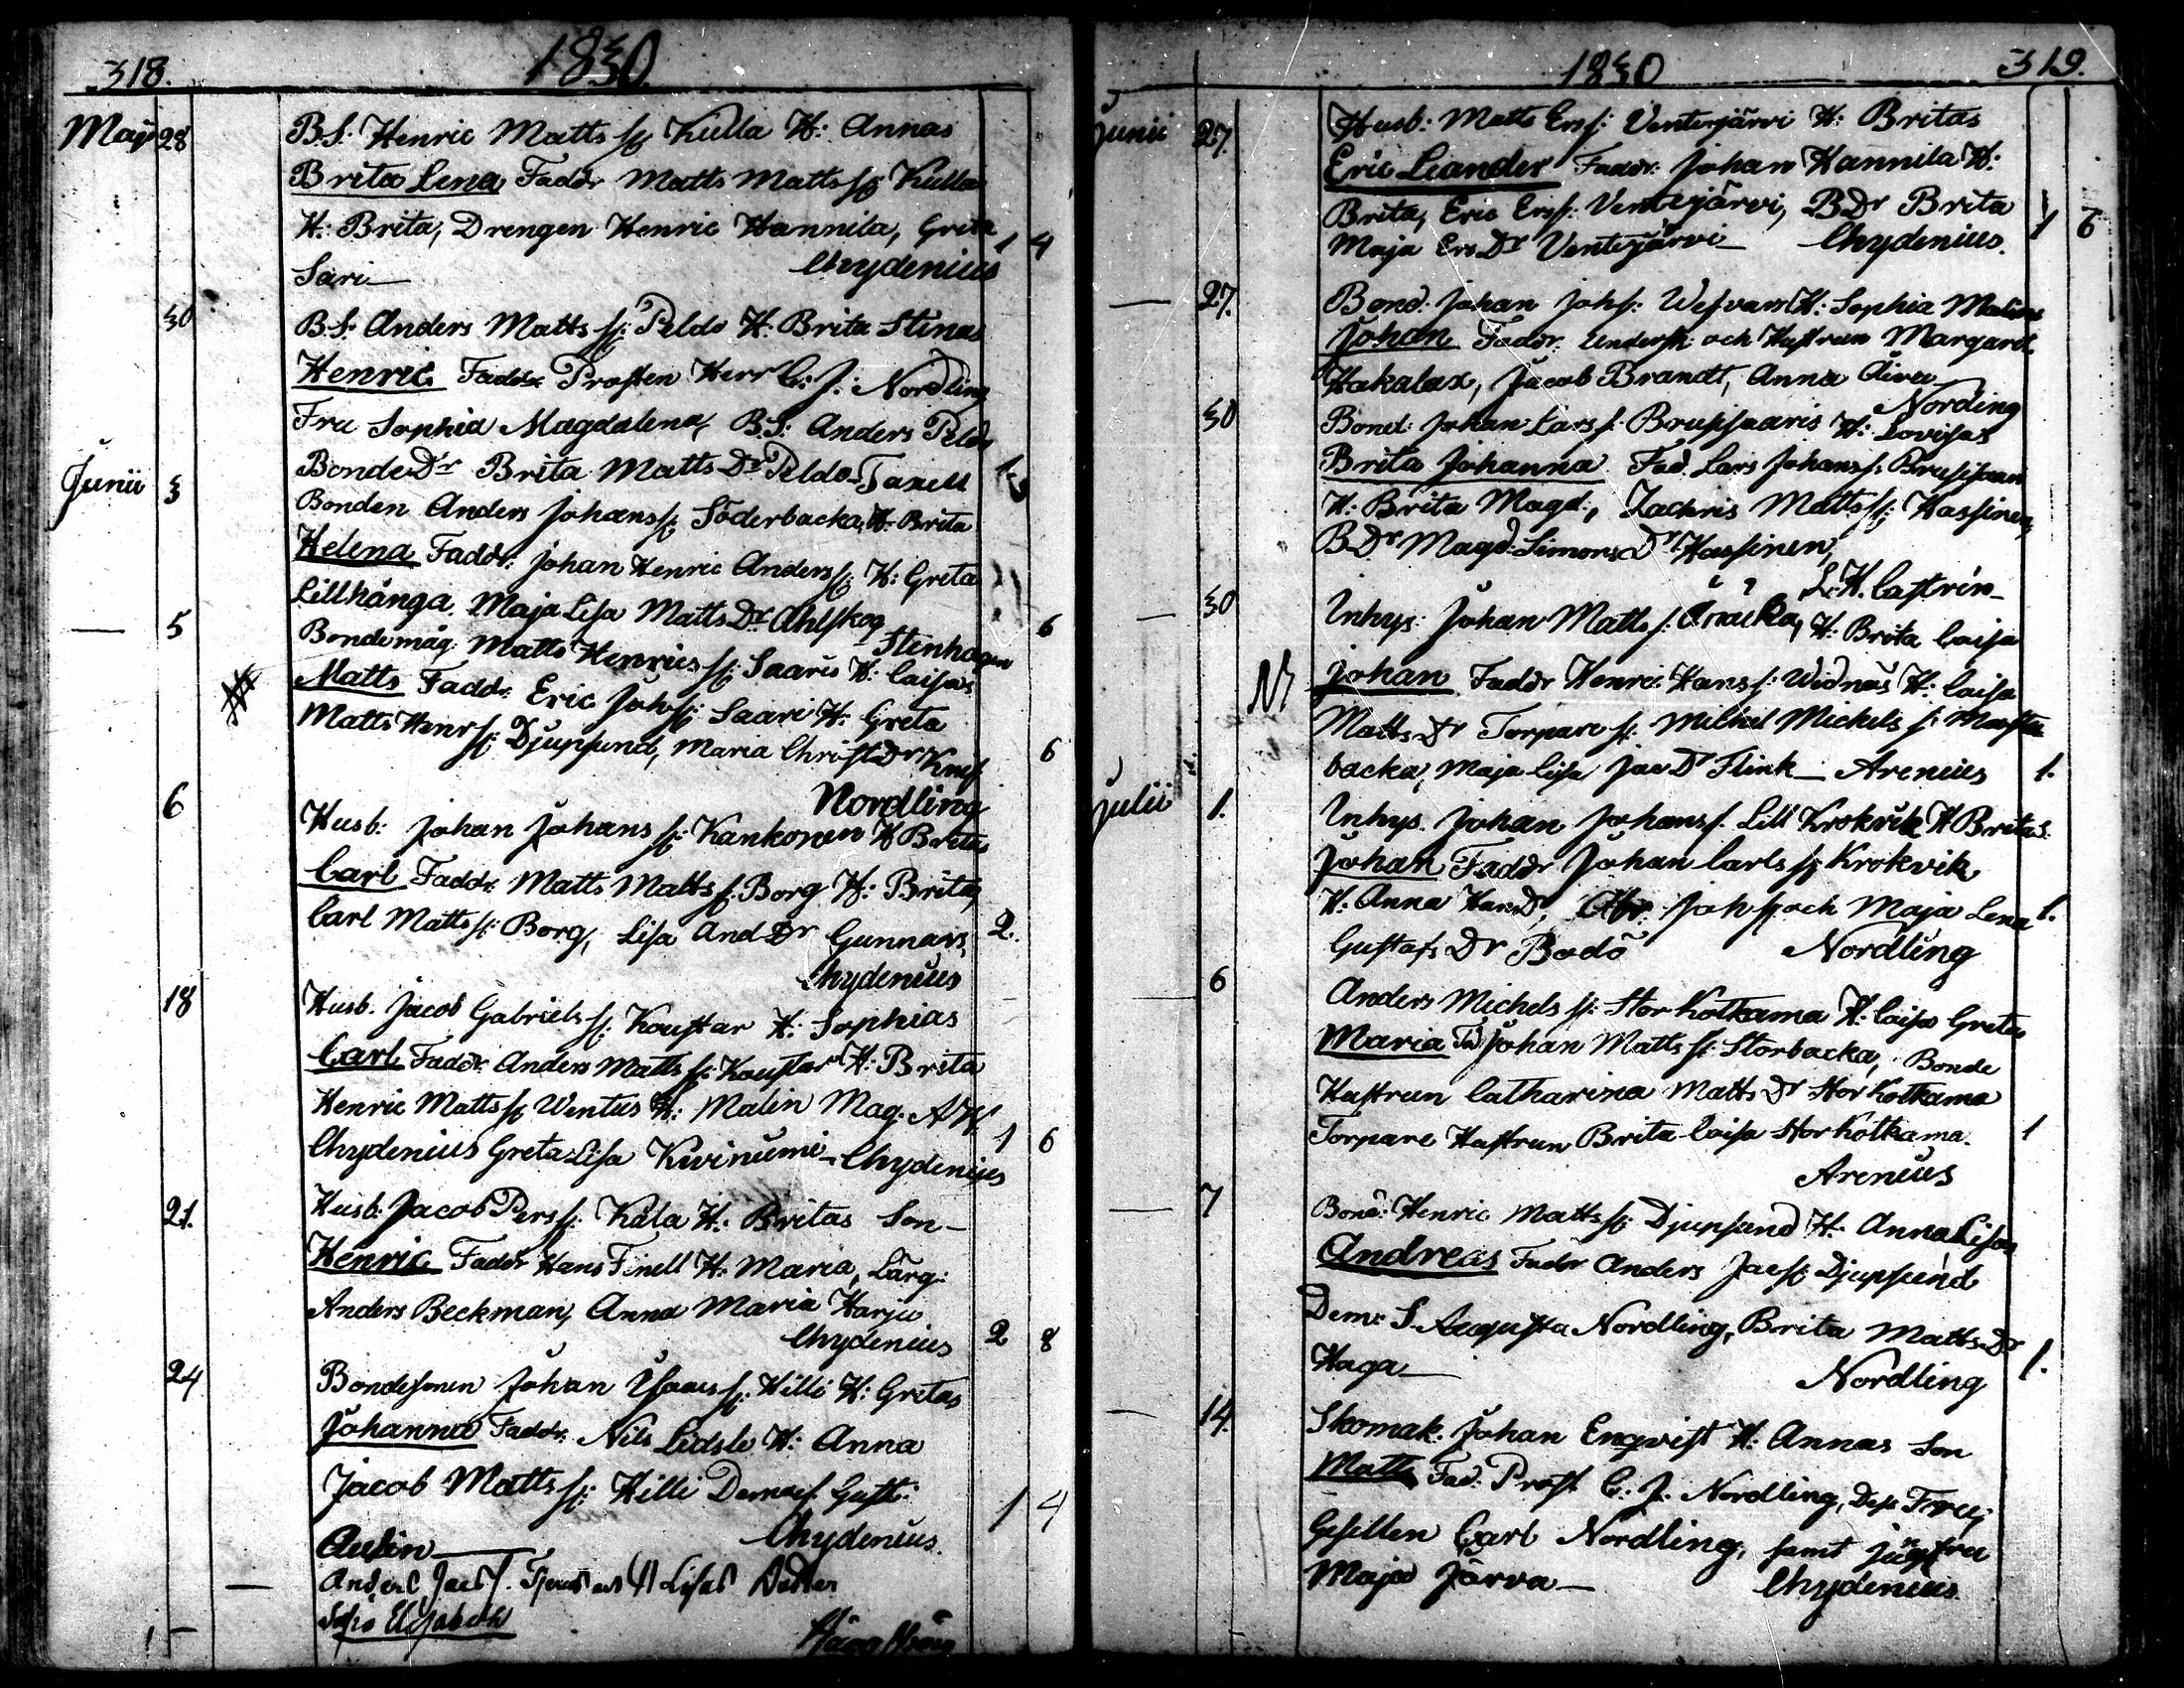 318. 1830.
Maji 28 B.S: Henric Mattsss: Kulla H: Annas
Brita Lena Faddr Matts Mattsss: Kulla
H: Brita, Drengen Henric Hannila, Greta 1 4
Sari — Chydenius
30 B.S: Anders Mattsss: Peldo H: Brita Stinas
Henric Faddr Prosten Herr C: J: Nordling
Fru Sophia Magdalena, B.S: Anders Peldo
Bonde Dr Brita Matts Dr Peldo – Taxell
Junii 3 Bonden Anders Johansss: Söderbacka, H: Brita
Helena Faddr: Johan Henric Andersss: H: Greta
Lillhånga, Maja Lisa Matts Dr Ahlskog 6
Stenhagen
— 5 Bondemåg Matts Henricsss: Saaris H: Caisas
Matts Faddr: Eric Johss: Saari H: Greta
Matts Henrss: Djupsund, Maria Christ Dr Knif 6
Nordling
6 Husb: Johan Johansss: Kankonen H Britas
Carl Faddr: Matts Mattsss: Borg H: Brita,
Carl Mattsss: Borg, Lisa And Dr Gunnars, 2.
Chydenius
18 Husb. Jacob Gabrielsss: Koustar H: Sophias
Carl Faddr: Anders Mattsss: Koustar H: Brita
Henric Mattsss: Wentus H: Malin Mag. A H
Chydenius Greta Lisa Kwinumi – Chydenius 1 6
21. Husb: Jacob Persss: Kåla H: Britas Son –
Henric Faddr Hans Finell H: Maria, Lärg:
Anders Beckman, Anna Maria Harju
Chydenius 2 8
24 Bondesonen Johan Isaacss: Hilli H: Gretas
Johanna Faddr: Nils Lidsle H: Anna
Jacob Mattsss: Hilli Demois. Gust: 1 4
Aulin — Chydenius.
— Anders Jacs S. H Lisas Dotter
Sofia Elisabeth

1830 319.
Junii 27. Husb: Matts Erss: Ventejärvi H: Britas
Eric Leander Faddr: Johan Hannila H:
Brita, Eric Erss: Ventejärvi, B Dr Brita 1 6
Maja Ers Dr Ventejärvi – Chydenius.
— 27. Bond: Johan Johs: H: Sophia Malins
Johan Faddr: Undersk: och Hustrun Margaret
Hakalax, Jacob Brandt, Anna
Nording
30 Bond: Johan Larss: Brussaaris H: Lovisas
Brita Johanna Fad. Lars Johanss: Brussaari
H: Brita Magd:, Zachris Mattsss: Hassinen,
B. Dr Magd: Simons Dr Hassinen,
L. H. Castrén –
— 30 Inhys: Johan Matts s: H: Brita Caisa
Johan Faddr Henric Hanss: Widnäs H: Caisa
Matts Dr Torpare s: Michel Mickels s:
backa, Maja Lisa Jac Dr Flink — Arenius 1.
Julii 1. Inhys. Johan Johanss: Lill Krokvik H Britas
Johan Faddr Johan Carls s: Krokvik
H: Anna Han D:, Abr: Johss: och Maja Lena 1.
Gustafs Dr Bodö Nordling
6 Anders Michels s: Stor Kotkama H: Caisa Gretas
Maria Fd Johan Matts s: Storbacka, Bonde
Hustrun Catharina Matts Dr Stor Kotkama
Torpare Hustrun Brita Caisa Stor Kotkama. 1
Arenius
— 7 Bond: Henric Mattsss: Djupsund H: Anna Lisas
Andreas Faddr Anders Jacss: Djupsund
Dem: S. Augusta Nordling, Brita Matts Dr
Haga — Nordling 1.
— 14. Skomak: Johan Enqvist H: Annas Son
Matts Fad: Prost C: J: Nordling, Dess Fru,
Gesellen Carl Nordling, samt jungfru
Maja Järva — Chydenius.